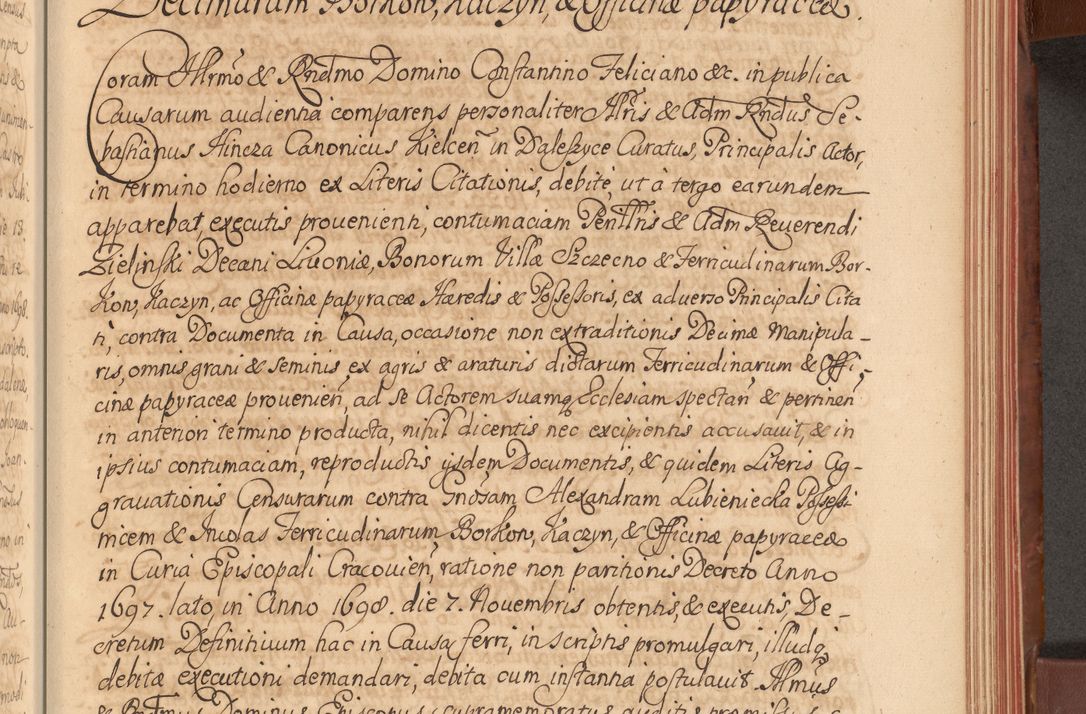 Decimarum Borkow, Kaczyn, & Officinæ papyraceæ.
Coram Illrmo & Rndmo Domino Constantino Feliciano &c. in publica
Causarum audientia comparens personaliter Illris & Adm Rndus Se-
bastianus Hincza Canonicus Kielceñ in Daleszyce Curatus, Principalis Actor,
in termino hodierno ex Literis Citationis, debite, ut à tergo earundem
apparebat, executis provenienti, contumaciam Penlltris & Adm Reverendi
Zielinski Decani Livoniæ, Bonorum Villæ Szczecno & Ferricudinarum Bor-
kow, Kaczyn, ac Officinæ papyraceæ Hæredis & Possessoris, ex adverso Principalis Cita
ti, contra Documenta in Causa, occasione non extraditionis Decimæ Manipula-
ris, omnis grani & seminis, ex agris & araturis dictarum Ferricudinarum & Offi-
cinæ papyraceæ provenieñ, ad se Actorem suamq Ecclesiam spectañ & pertineñ
in anteriori termino producta, nihil dicentis nec excipientis accusavit, & in
ipsius contumaciam, reproductis ijsdem Documentis, & quidem Literis Ag-
gravationis Censurarum contra Gnosam Alexandram Lubieniecka Possessi
tricem & Incolas Ferricudinarum Borkow, Kaczyn, & Officinæ papyraceæ
in Curia Episcopali Cracovieñ, ratione non paritionis Decreto Anno
1697. lato, in Anno 1698. die 7. Novembris obtentis, & executis, De-
cretum Definitivum hac in Causa ferri, in scriptis promulgari, illudq,
debitæ executioni demandari, debita cum instantia postulavit. Illmus
& Rndmus Dominus Episcopus, supramemoratus, auditis